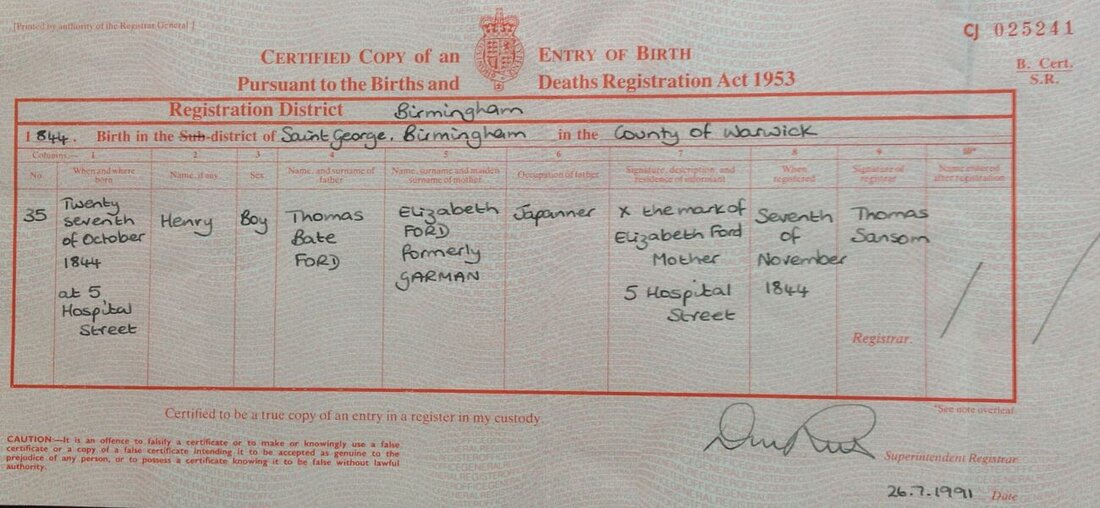 [Printed by authority of the Registrar General.]
CJ 025241
CERTIFIED COPY of an ENTRY OF BIRTH
Pursuant to the Births and Deaths Registration Act 1953
B. Cert.
S.R.
Registration District Birmingham
1844. Birth in the Sub-district of Saint George, Birmingham in the County of Warwick
Columns:— 1 2 3 4 5 6 7 8 9 10*
No. When and where born Name, if any Sex Name, and surname of father Name, surname and maiden surname of mother Occupation of father Signature, description, and residence of informant When registered Signature of registrar Name entered after registration
35 Twenty seventh of October 1844 at 5 Hospital Street
Henry
Boy
Thomas Bate FORD
Elizabeth FORD formerly GARMAN
Japanner
X the mark of Elizabeth Ford Mother 5 Hospital Street
Seventh of November 1844
Thomas Sansom
Registrar.
Certified to be a true copy of an entry in a register in my custody.
*See note overleaf
CAUTION:—It is an offence to falsify a certificate or to make or knowingly use a false
certificate or a copy of a false certificate intending it to be accepted as genuine to the
prejudice of any person, or to possess a certificate knowing it to be false without lawful
authority.
Superintendent Registrar
26.7.1991 Date